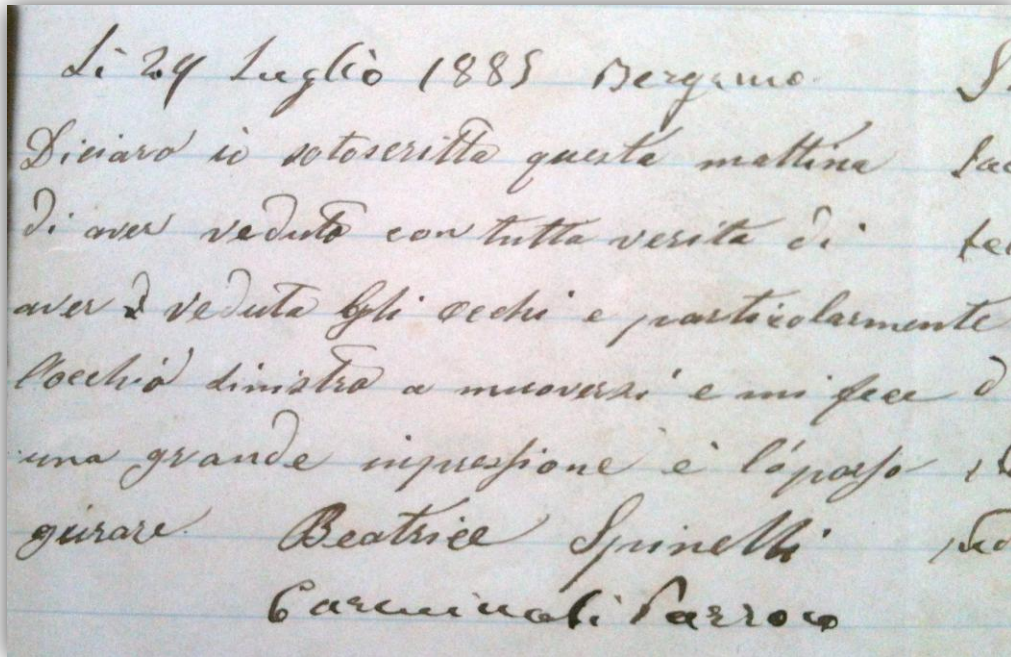 Li 29 Luglio 1885 Bergamo
Diciaro iò sotoscritta questa mattina
di aver veduto con tutta verita di
aver veduta Gli occhi e particolarmente
l'occhio sinistro a muoversi e mi fece
una grande inpressione è l'ó posso
giurare Beatrice Spinelli
Carminati Parroco